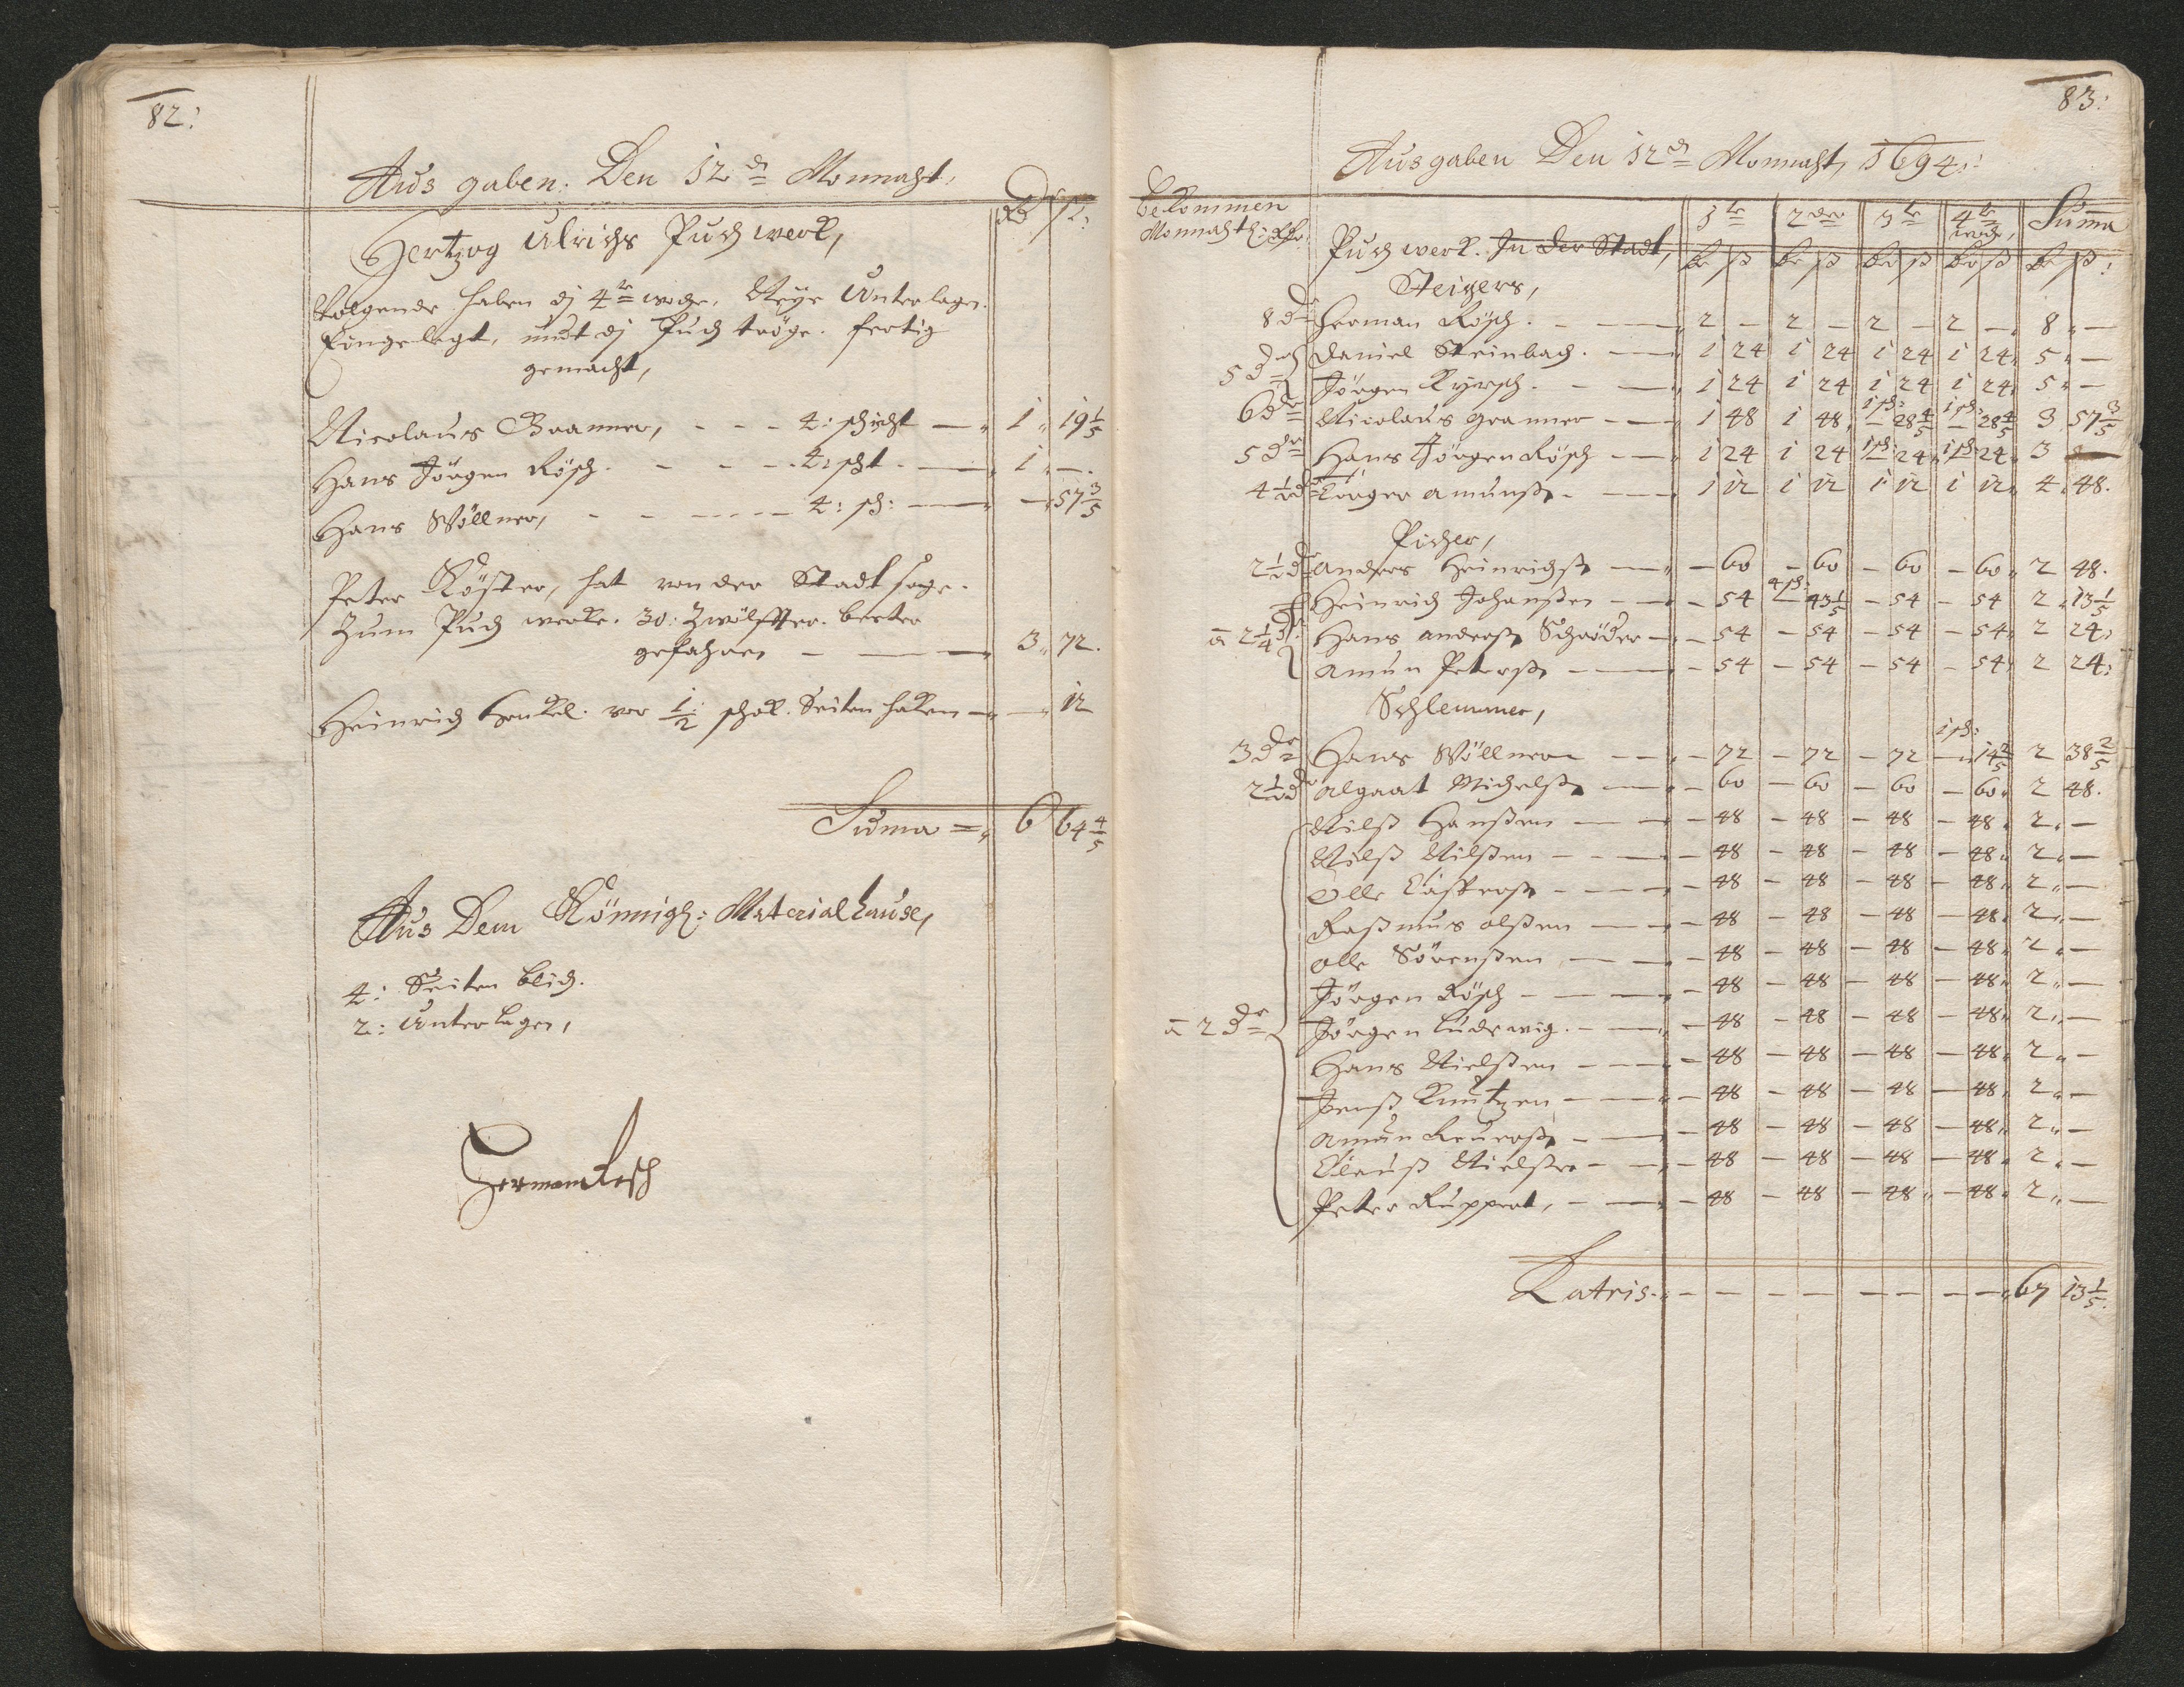 82:
Aus gaben. Den 12 d Monnaht.
Rd ß:
Hertzog Ulrichs Puchwerk,
folgende haben dj 4te woche. Neye Unterlagen.
Eingelegt, undt dj Puch tröge. fertig
gemacht,
Nicolaus Granner, - - - 4: schicht — 1 19 1/5
Hans Jörgen Rösch. - - - 4: scht. — 1 —.
Hans Wöllner, - - - 4: sch: — — 57 3/5
Peter Köster, hat von der Stadt sage.
Zum Puch werke. 30: Zwölffter. bretter
gefahren — — 3 72.
Heinrich Henkel. vor 1/2 schok. Seiten haken — — 12
Suma = 6 64 4/5
Aus Dem Königl: Material hause,
4: Seiten blich.
2: Unterlagen,
Herman Resch
83:
Ausgaben Den 12 d Monnaht, 1694:
bekommen
Monnahtl: Rdr.
Puchwerk. In der Stadt,
1te 2der 3te 4te woche, Suma
Rd ß Rd ß Rd ß Rd ß Rd ß:
Steigers,
8 dr Herman Rösch. — 2 — 2 — 2 — 2 — 8 —
5 dr Daniel Steinbach. — 1 24 1 24 1 24 1 24 5 —
Jörgen Kyrsch. — 1 24 1 24 1 24 1 24 5 —
6 dr Nicolaus Granner — 1 48 1 48 1 sch: — 28 4/5 1 sch: — 28 4/5 3 57 3/5
5 dr Hans Jörgen Rösch — 1 24 1 24 1 sch: — 24 1 sch: — 24 3 —
4 1/2 dr Törger Amunß. — 1 12 1 12 1 12 1 12 4 48.
Pucher,
2 1/2 dr Anders Heinrichß — — 60 — 60 — 60 — 60 2 48.
Heinrich Johanßen — — 54 4 sch: — 43 1/5 — 54 — 54 2 13 1/5
a 2 1/4 dr. Hans Anderß Schröder — — 54 — 54 — 54 — 54 2 24:
Amun Peterß — — 54 — 54 — 54 — 54 2 24:
Schlemmer,
3 dr Hans Wöllner — — 72 — 72 — 72 1 sch: — 14 2/5 2 38 2/5
2 1/2 dr Algaat Michelß — — 60 — 60 — 60 — 60 2 48.
Nilß Hanßen — — 48 — 48 — 48 — 48 2 —
Nilß Nilßen — — 48 — 48 — 48 — 48 2 —
Olle Casperß — — 48 — 48 — 48 — 48 2 —
Raßmus Olßen — — 48 — 48 — 48 — 48 2 —
Olle Sörenßen — — 48 — 48 — 48 — 48 2 —
Jörgen Rösch — — 48 — 48 — 48 — 48 2 —
a 2 dr Jörgen Ludewig. — — 48 — 48 — 48 — 48 2 —
Hans Nielßen — — 48 — 48 — 48 — 48 2 —
Jenß Knutzen — — 48 — 48 — 48 — 48 2 —
Amun — — 48 — 48 — 48 — 48 2 —
Clauß Nielßen — — 48 — 48 — 48 — 48 2 —
Peter Ruppert, — — 48 — 48 — 48 — 48 2 —
Latris. — — — — — — — — 67 13 1/5.